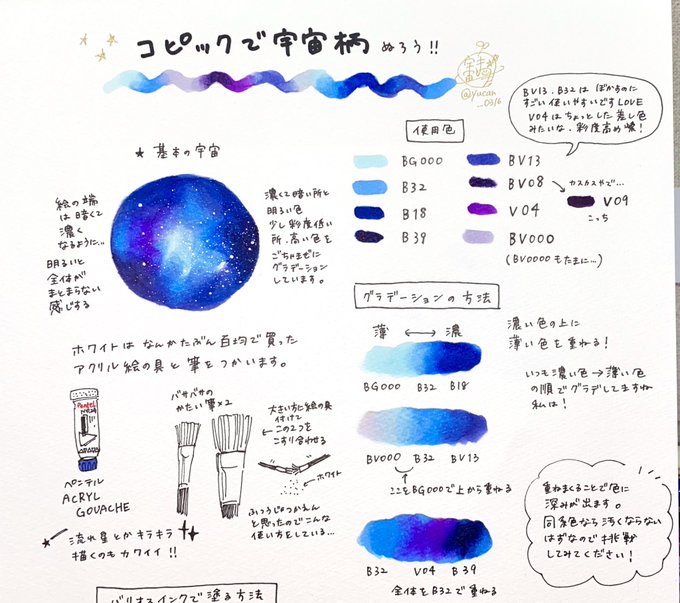 コピックで宇宙柄 ぬろう!!
@yucan
...0316
BV13、B32は ぼかすのに
すごい使いやすいです LOVE
V04は ちょっとした差し色
みたいな・彩度高め 紫!
使用色
★ 基本の宇宙
BG000
B32
B18
B39
BV13
BV08
V04
BV000
(BV0000もたまに...)
カスカスやで...
V09
こっち
絵の端
は暗くて
濃く
なるように...
明るいと
全体が
まとまらない
感じする
濃くて暗い所と
明るい色
少し彩度低い
所、高い色を
ごちゃまぜに
グラデーション
しています。
グラデーションの方法
薄 ↔ 濃
BG000 B32 B18
濃い色の上に
薄い色を重ねる!
いつも濃い色→薄い色
の順でグラデしてますね
私は!
ホワイトは なんかたぶん百均で買った
アクリル絵の具と筆をつかいます。
Pentel
ペンテル
ACRYL
GOUACHE
バサバサの
かたい筆×2
大きい方に絵の具
付けて
この2つを
こすり合わせる
ホワイト
ふつうじゃつかえん
と思ったのでこんな
使い方をしている...
流れ星とかキラキラ
描くのもカワイイ!!
BV000 B32 BV13
ここをBG000で上から重ねる
B32 V04 B39
全体をB32で重ねる
重ねまくることで色に
深みが出ます。
同系色なら汚くならない
はずなので挑戦
してみてください!
バリオスインクで塗る方法